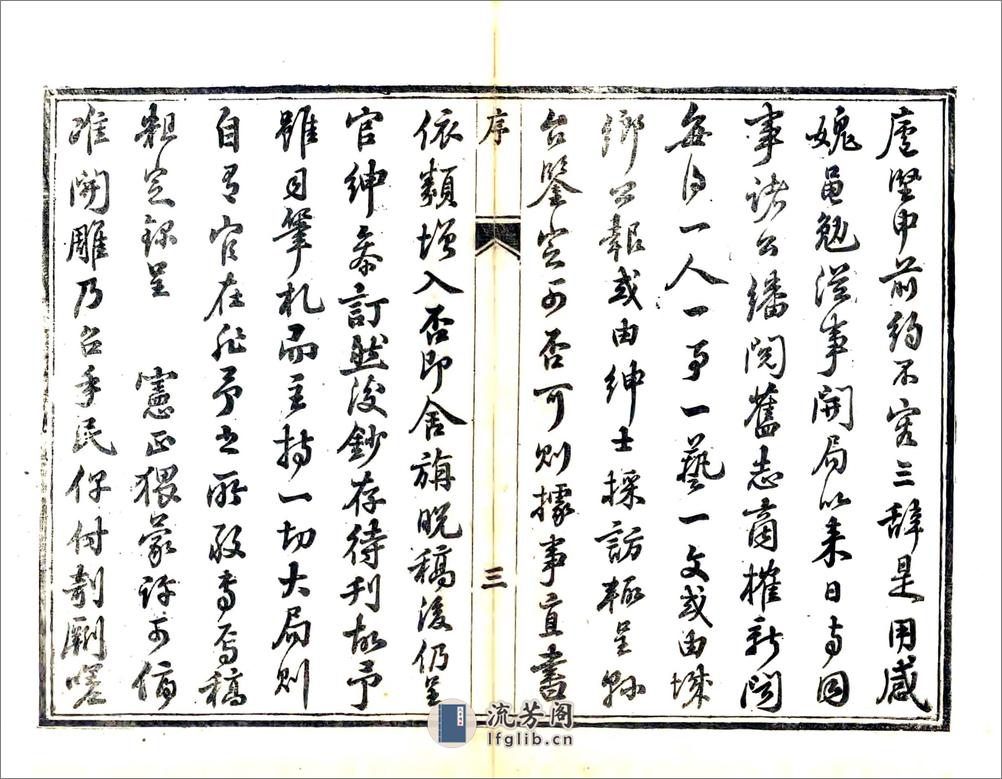 廬堅申前約不容三辭是用感
媿黽勉從事開局以來日与同
事諸公繙閱舊志商榷新聞
每得一人一事一藝一文或由城
鄉公報或由紳士採訪輒呈縣
台鑒定可否可則據事直書
序
三
依類增入否即舍旃脫稿後仍呈
官紳參訂然後鈔存待刊故予
雖司筆札而主持一切大局則
自有官在非予之所敢專焉稿
粗定録呈 憲正猥蒙許可俯
准開雕乃召手民俾付剞劂嗟
流芳阁
lfglib.cn